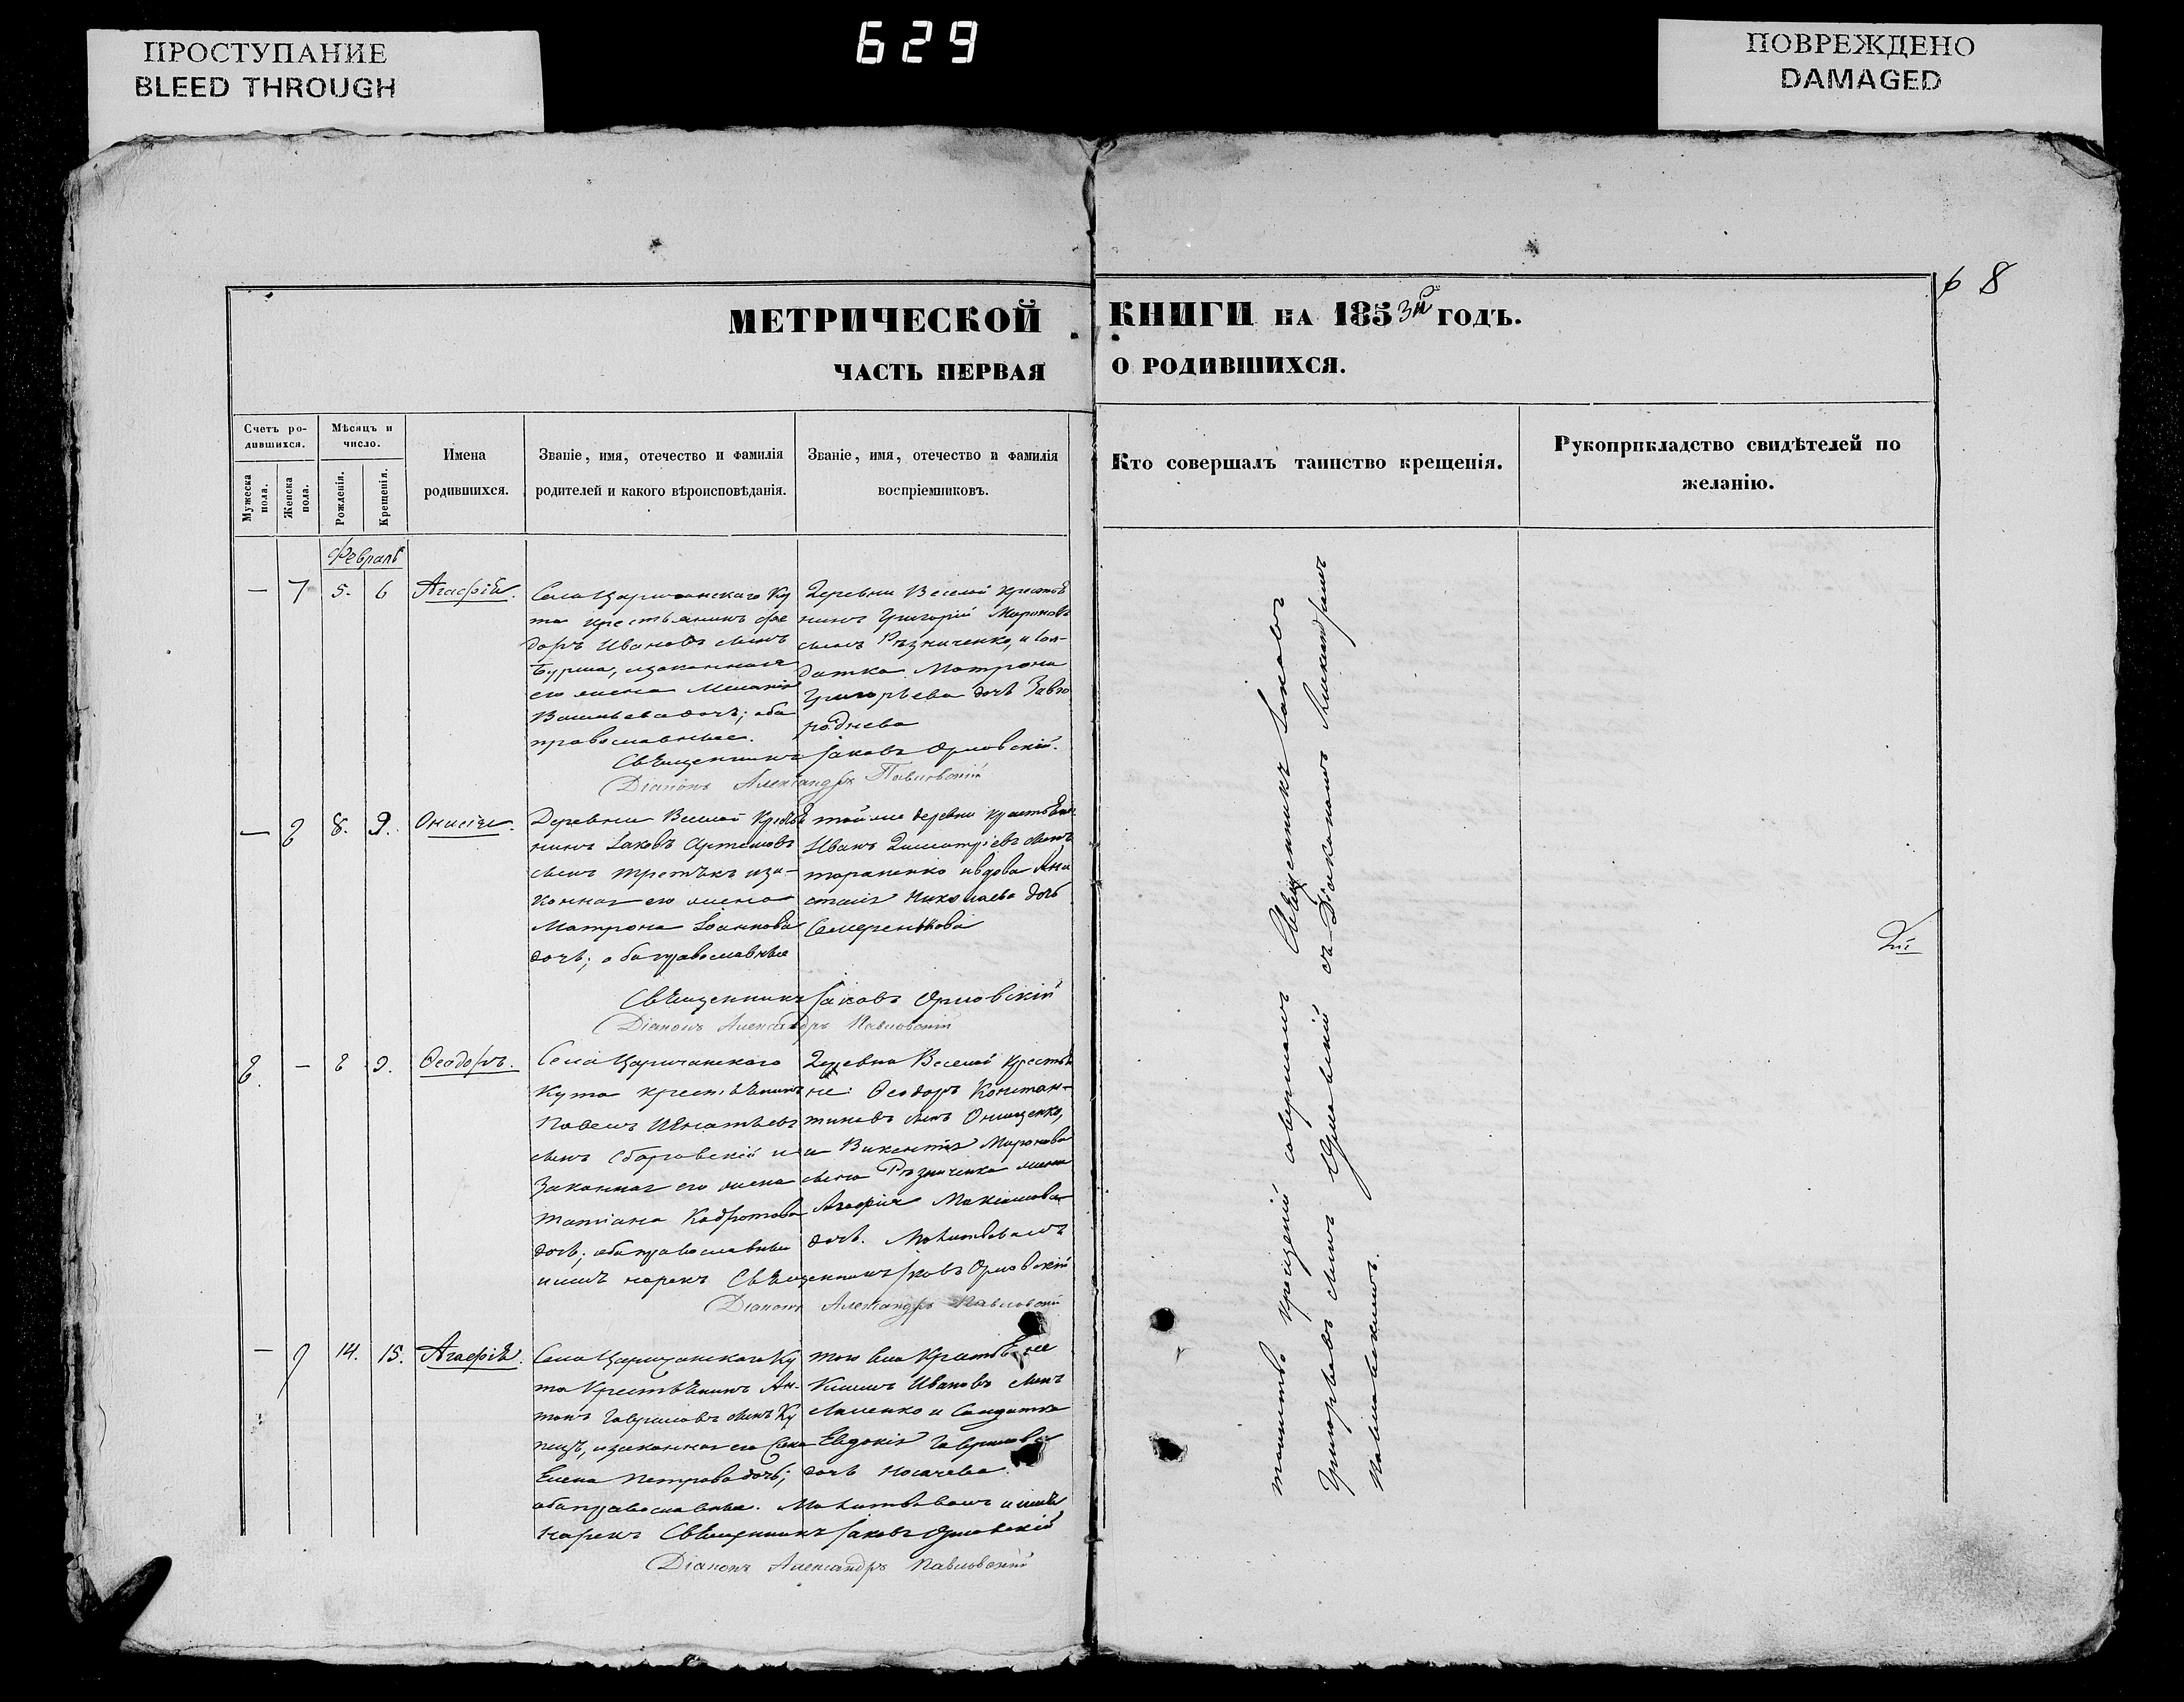 ПРОСТУПАНИЕ
BLEED THROUGH
629
ПОВРЕЖДЕНО
DAMAGED
68
МЕТРИЧЕСКОЙ КНИГИ НА 1853й ГОДЪ.
ЧАСТЬ ПЕРВАЯ О РОДИВШИХСЯ.
Счетъ ро-
дившихся.
Мужеска пола.
Женска пола.
Мѣсяцъ и
число.
Рожденія.
Крещенія.
Имена
родившихся.
Званіе, имя, отечество и фамилія
родителей и какого вѣроисповѣданія.
Званіе, имя, отечество и фамилія
воспріемниковъ.
Кто совершалъ таинство крещенія.
Рукоприкладство свидѣтелей по
желанію.
Февраль
— 7 5. 6 Агафія.
Села Царичанскаго Ку
та крестьянинъ Фе
доръ Ивановъ сынъ
Бурма, и законная
его жена Меланія
Васильева дочь; оба
православные.
Деревни Веселой крестья
нинъ Григорій Мироновъ
сынъ Рѣзниченко, и сол-
датка Матрона
Григорьева дочь Заво
роднева
Священникъ Іаковъ Орловскій.
Діаконъ Александръ Павловскій
— 8 8. 9. Онисія.
Деревни Веселой Крестья
нинъ Іаковъ Артемовъ
сынъ Третякъ и за-
конная его жена
Матрона Іоаннова
дочь; оба православные
той же деревни крестьянинъ
Иванъ Димитріевъ сынъ
Тараненко и вдова Ана
стасія Николаева дочь
Семеренькова
Священникъ Іаковъ Орловскій
Діаконъ Александръ Павловскій
8. — 8 9. Ѳеодоръ.
Села Царичанскаго
Кута крестьянинъ
Павелъ Игнатьевъ
сынъ Сбаровскій и
законная его жена
Татіана Кодратова
дочь; оба православные
Деревни Веселой крестья
не: Ѳеодоръ Констан-
тиновъ сынъ Онищенко,
и Викентія Миронова
сына Рѣзниченка жена
Агафія Максимова
дочь. Молитвовалъ
и имя нарекъ Священникъ Іаковъ Орловскій
Діаконъ Александръ Павловскій
— 9 14. 15. Агафія.
Села Царичанскаго Ку
та Крестьянинъ Ан-
тонъ Гавриловъ сынъ Ку
пецъ, и законная его жена
Елена Петрова дочь;
оба православные.
того села Крестьяне
Климъ Ивановъ сынъ
и Солдатка
Евдокія Гаврилова
дочь Носачева.
Молитвовалъ и имя
нарекъ Священникъ Іаковъ Орловскій
Діаконъ Александръ Павловскій
таинство крещенія совершалъ Священникъ Іаковъ
Григорьевъ сынъ Орловскій съ Діакономъ Александромъ
Павловскимъ.